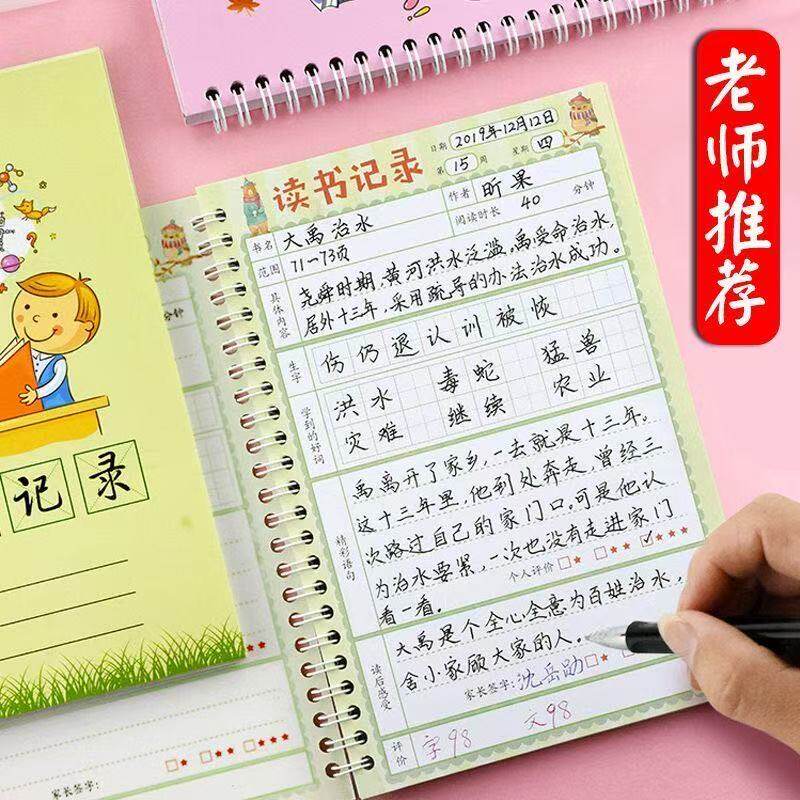 老师推荐
读书记录
日期 2019年12月12日
第 15 周 星期 四
书名 大禹治水
作者 昕果
范围 71-73页
阅读时长 40 分钟
具体内容
尧舜时期,黄河洪水泛滥,禹受命治水,
居外十三年,采用疏导的办法治水成功。
生字
伤仍退认训被恢
学到的好词
洪水 毒蛇 猛兽
灾难 继续 农业
精彩语句
禹离开了家乡,一去就是十三年。
这十三年里,他到处奔走,曾经三
次路过自己的家门口。可是他认
为治水要紧,一次也没有走进家门
看一看。
个人评价
读后感受
大禹是个全心全意为百姓治水,
舍小家顾大家的人。
家长签字:沈岳勋
评价
字98 文98
记录
分钟
家长签字: